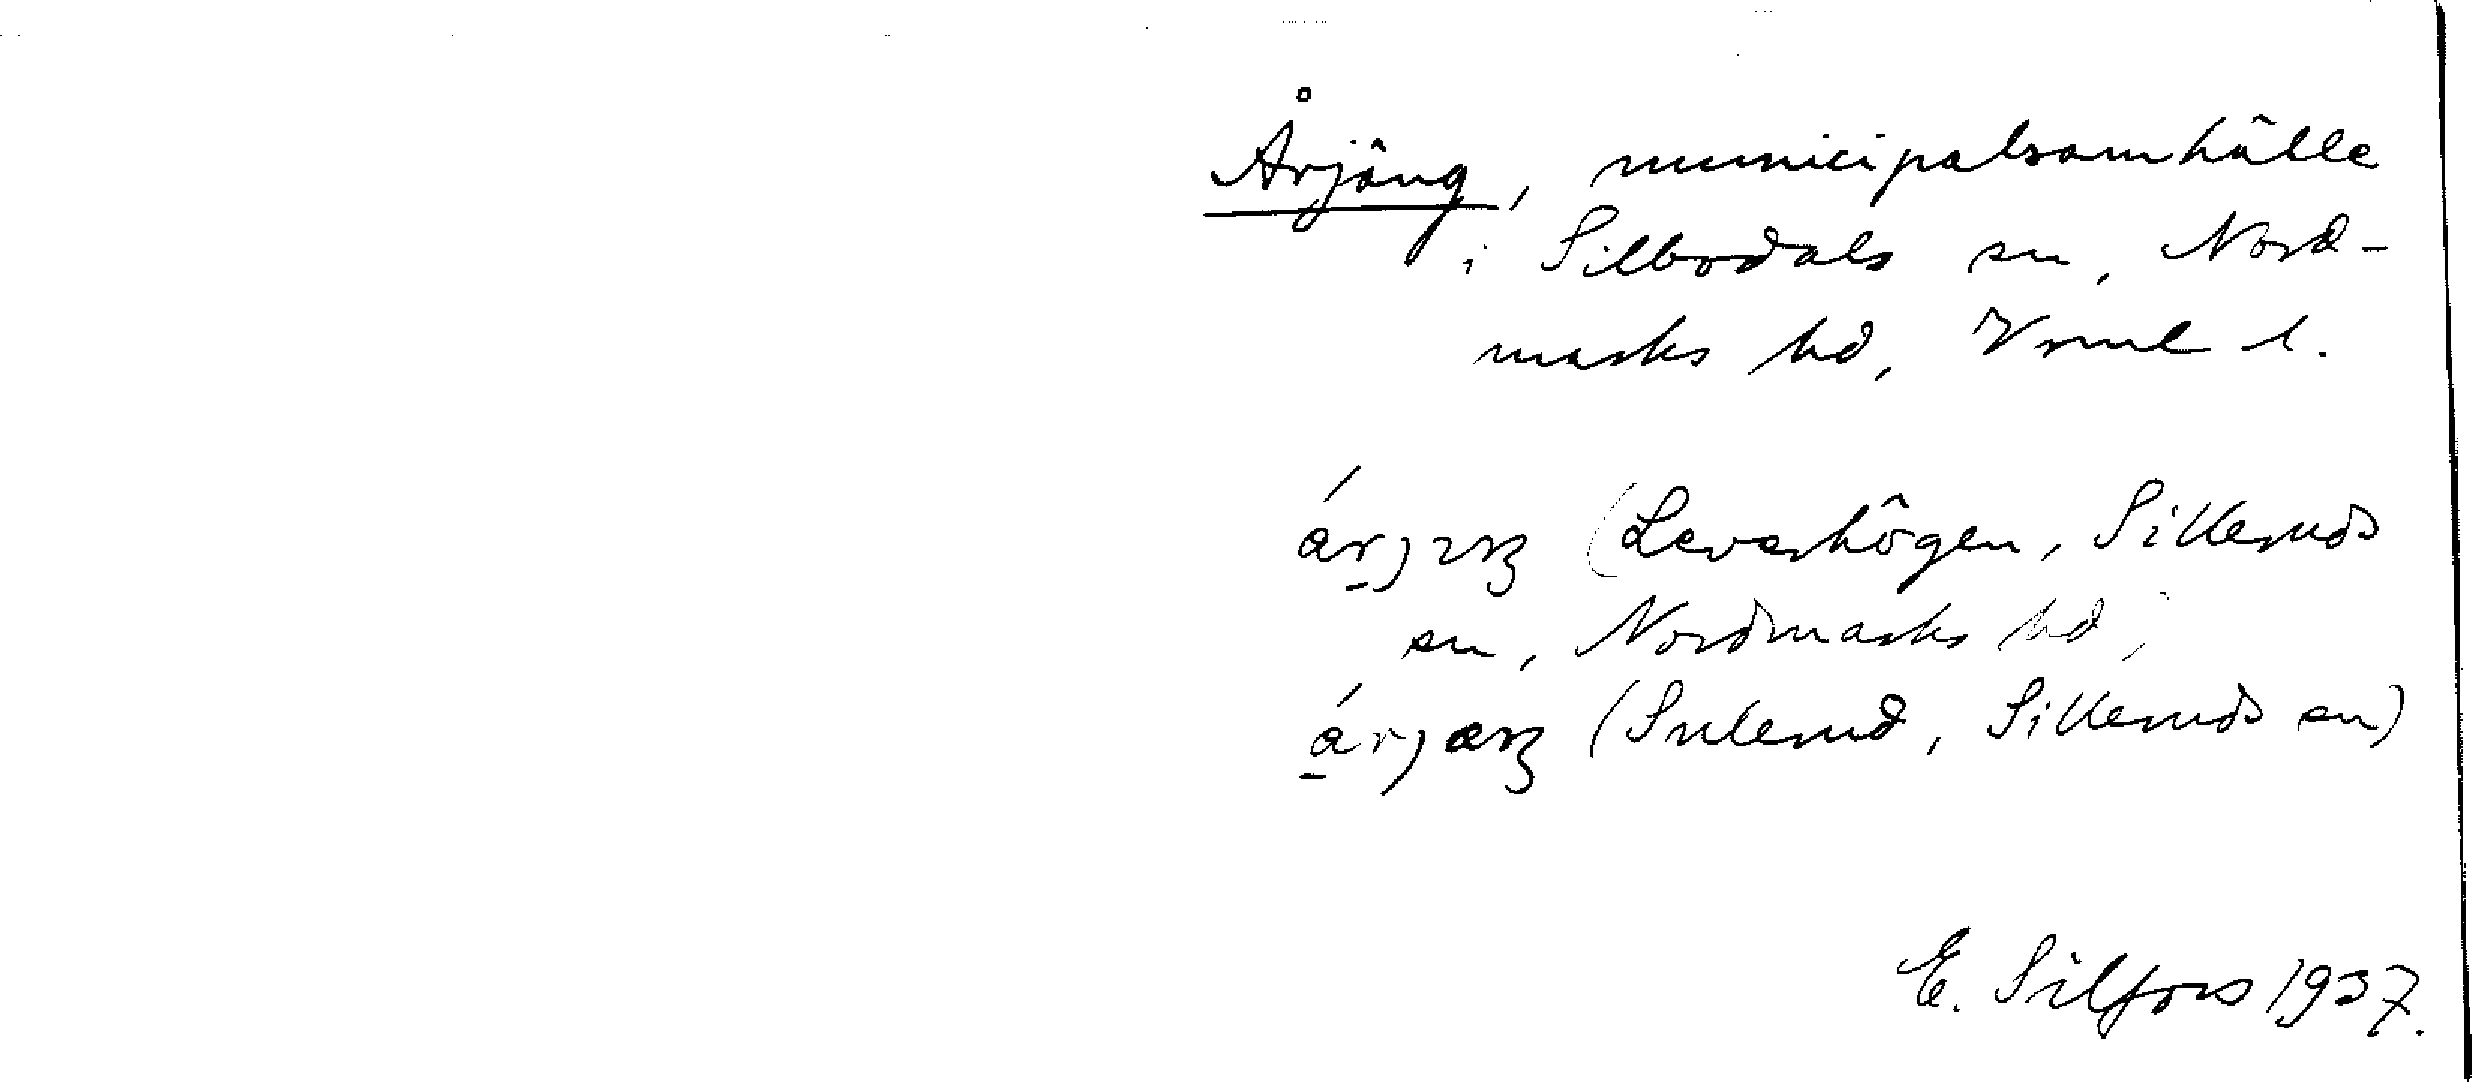 Årjäng, municipalsamhälle
i Silbodals sn, Nord-
marks hd, Vrml l.
(Leverhögen, Silleruds
sn, Nordmarks hd;
(Sulerud, Silleruds sn)
E. Silfors 1937.